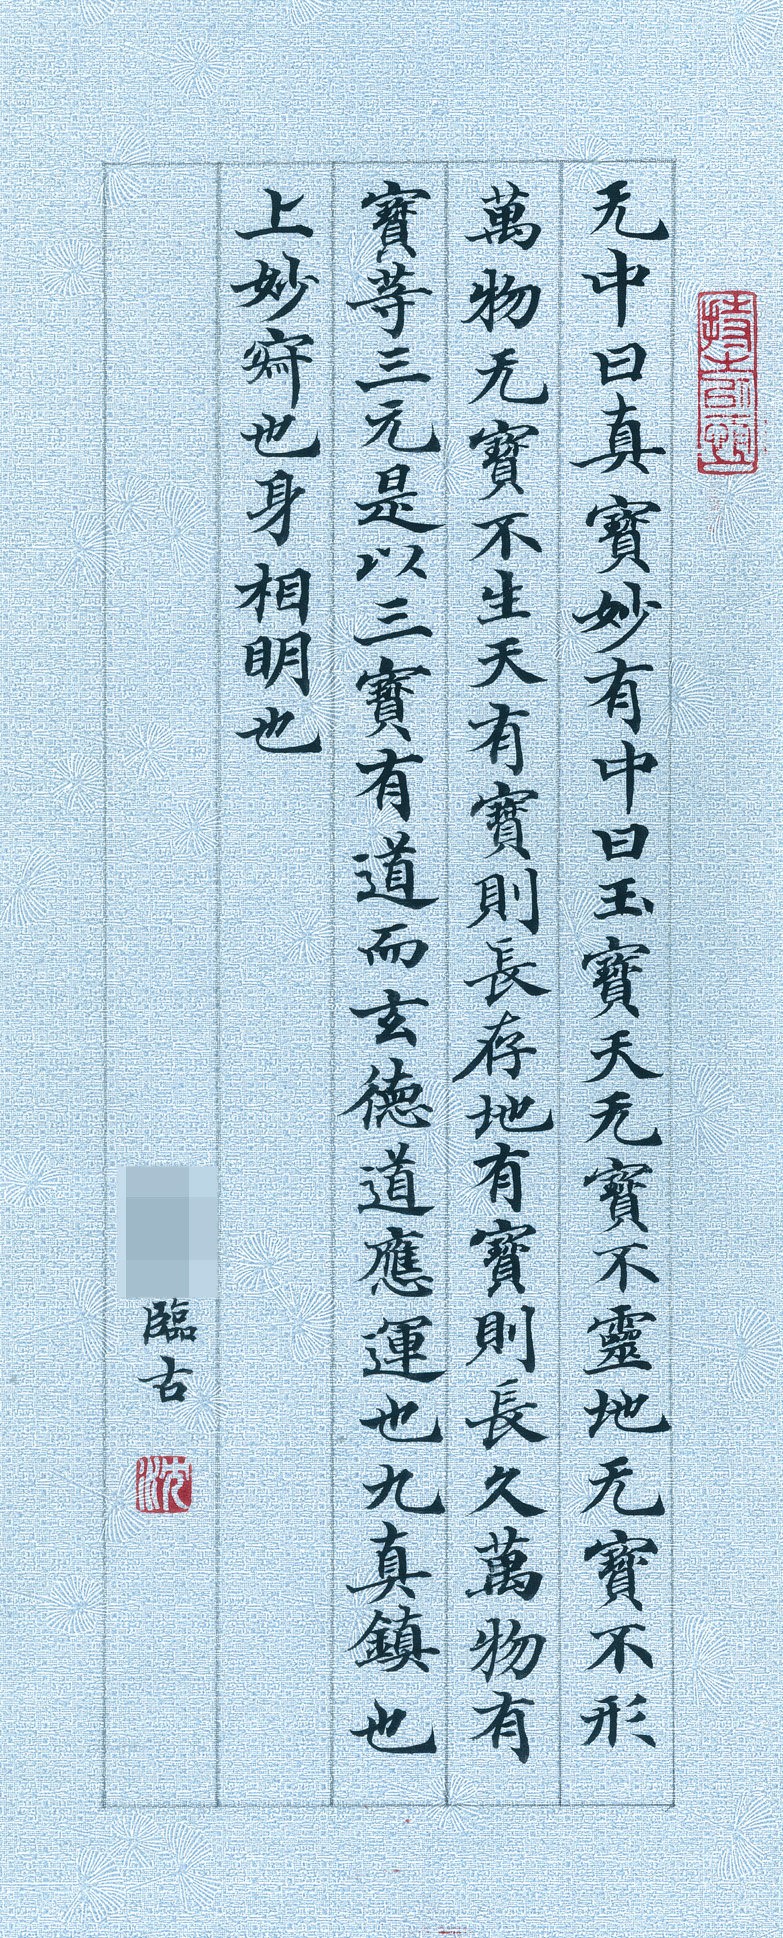 无中曰真寶妙有中曰玉寶天无寶不靈地无寶不形
萬物无寶不生天有寶則長存地有寶則長久萬物有
寶等三元是以三寶有道而玄德道應運也九真鎮也
上妙齋也身相明也
臨古